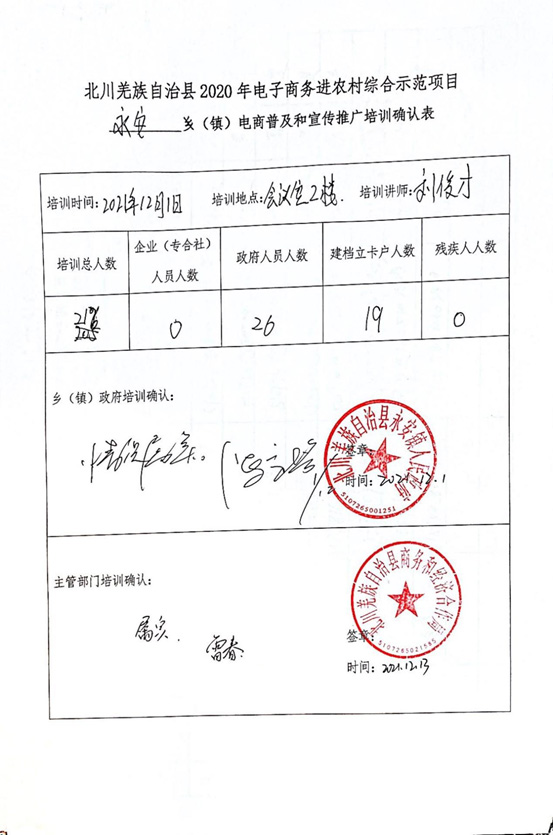 北川羌族自治县2020年电子商务进农村综合示范项目
永安乡（镇）电商普及和宣传推广培训确认表
培训时间:2021年12月1日 培训地点:会议室二楼. 培训讲师:刘俊才
培训总人数 企业（专合社）人员人数 政府人员人数 建档立卡户人数 残疾人人数
0 26 19 0
乡（镇）政府培训确认：
情况属实.
北川羌族自治县永安镇人民政府
5107265001251
签章：
时间：2021.12.1
主管部门培训确认：
北川羌族自治县商务和经济合作局
5107265021585
属实. 雷春
签章：
时间：2021.12.13